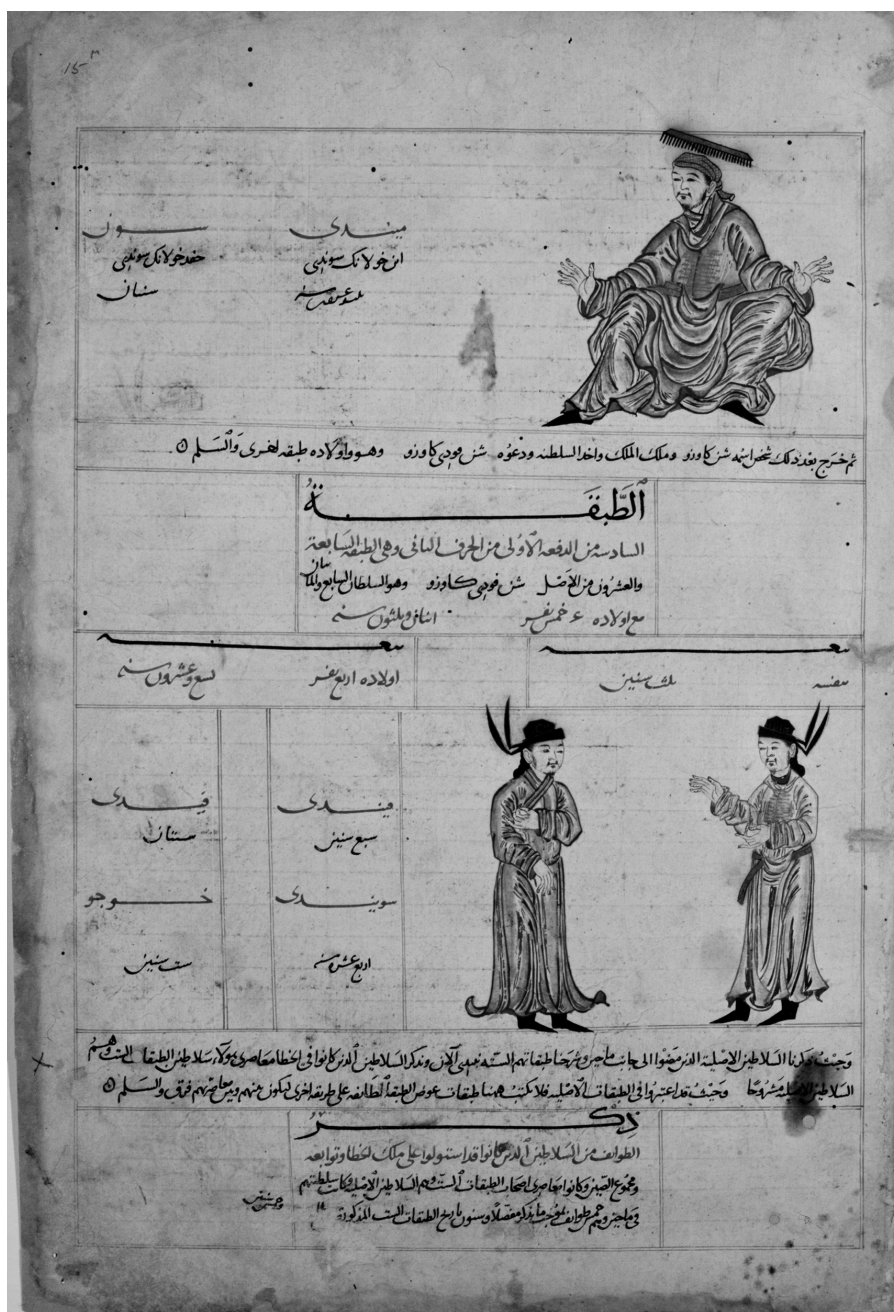 15
ميندى سون
ابن خولانك سونپى حفد خولانك سونپى
سنتان
ثم خرج بعد ذلك شخص اسمه شن كاوزو وملك الملك واخذ السلطنة ودعوه شن فودپى كاوزو وهو واولاده طبقه اخرى والسلم
الطبقة
السادسه من الدفعه الاولى من الحرف الثانى وهى الطبقه السابعة
والعشرون من الاصل شن فودپى كاوزو وهو السلطان السابع والمائتان
مع اولاده خمس نفر اثنان وثلثون سنه
بنفسه ثلث سنين اولاده اربع نفر تسع وعشرون سنه
ميندى فيدى
سبع سنين سنتان
سويندى خوجو
اربع عشره سنه ست سنين
وحيث ذكرنا السلاطين الاصلية الذين مضوا الى جانب ماجين وشرحنا طبقاتهم السته نبتدى الآن ونذكر السلاطين الذين كانوا فى الخطا معاصرى هولاء سلاطين الطبقات الست وهم
السلاطين الاصلية مشروحا وحيث قد اعتبروا فى الطبقات الاصليه فلا نكتب ههنا طبقات عوض الطبقة الطايفه على طريقه اخرى ليكون بينهم وبين معاصريهم فرق والسلم
ذكر
الطوايف من السلاطين الذين كانوا قد استولوا على ملك الخطا وتوابعه
ومجموع الصين وكانوا معاصرى اصحاب الطبقات الست وهم السلاطين الاصلية وكانت سلطنتهم
فى ماجين وهم خمس طوايف بموجب ما يذكر مفصلا وسنون تاريخ الطبقات الست المذكورة